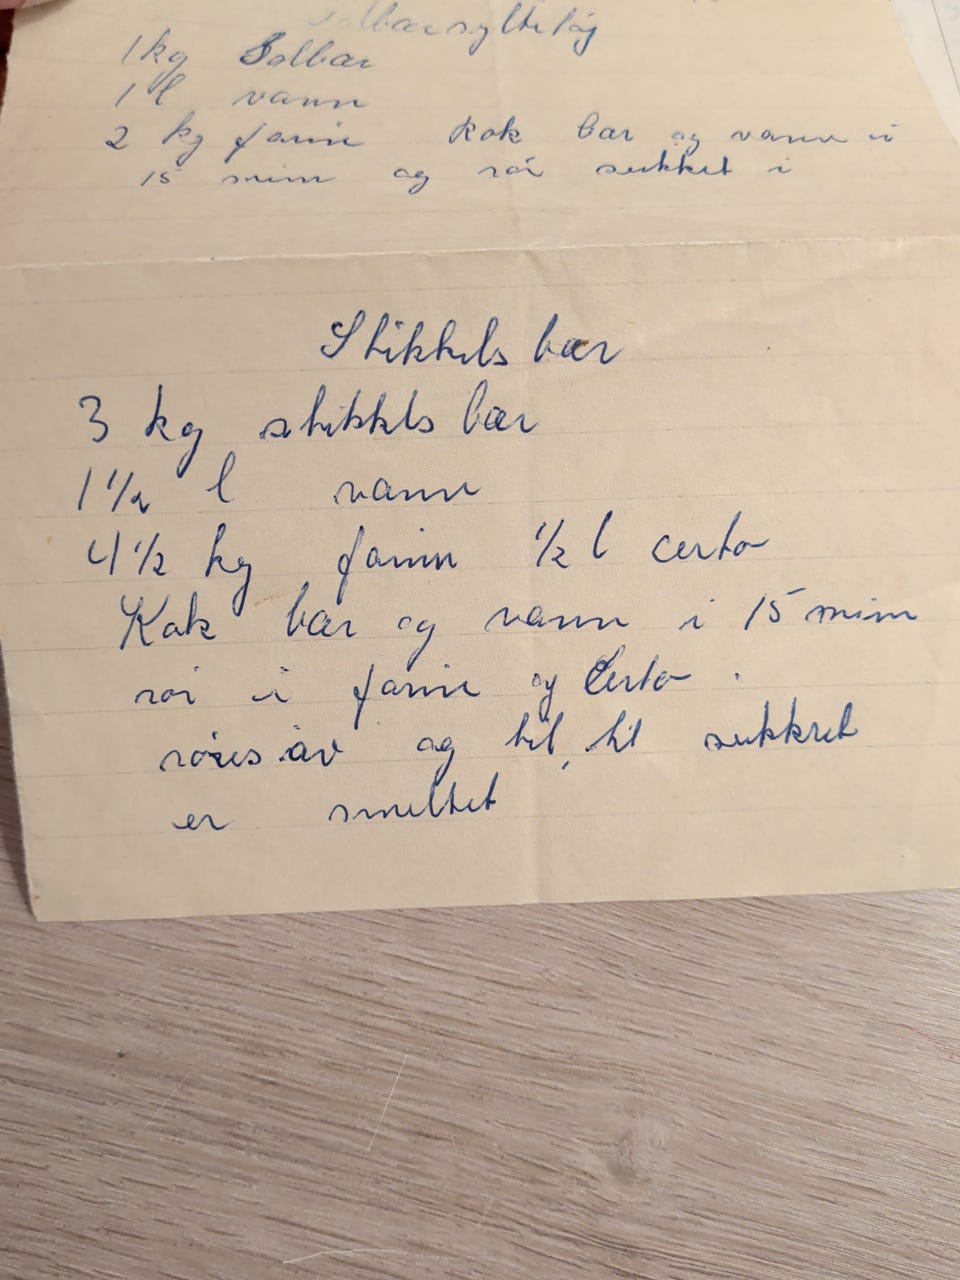 Solbærsyltetøj
1 kg Solbær
1 l vann
2 kg farin Kok bær og vann i
15 min og rør sukket i
Stikkelsbær
3 kg stikklsbær
1 1/2 l vann
4 1/2 kg farin 1/2 l certo
Kok bær og vann i 15 min
rør i farin og Certo.
røres av og til, til sukkret
er smeltet